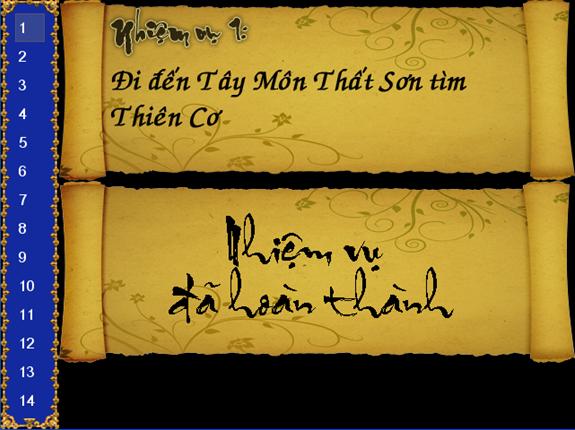 1
2
3
4
5
6
7
8
9
10
11
12
13
14
Nhiệm vụ 1:
Đi đến Tây Môn Thất Sơn tìm
Thiên Cơ
Nhiệm vụ
đã hoàn thành